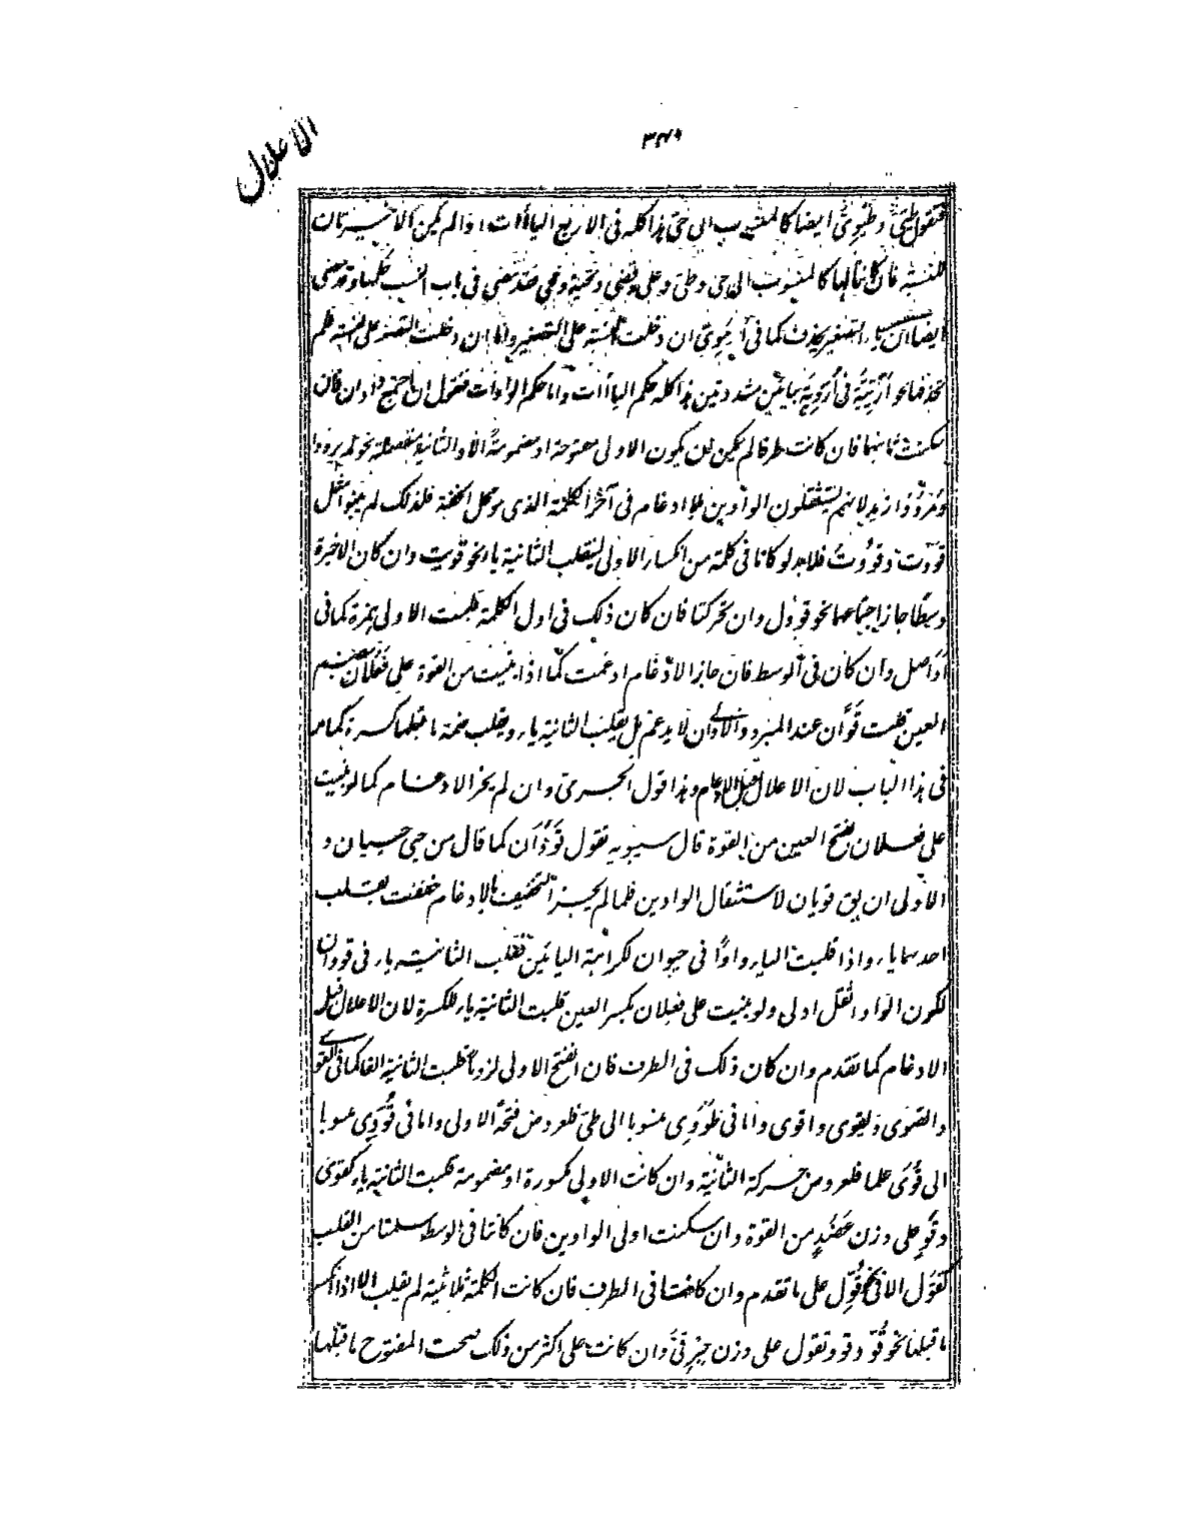 الاعلال
٣٤٩
فتقول طيّيّ وطيويّ ايضا كالمنسوب الى حيّ هذا كله فى الاربع الياآت اذا لم يكن الاخيرتان
للنسبة فان كانتا لها كالمنسوب الى حى وطى وعلى وقصى وتحية ومحى فقد مضى فى باب النسب حكمها وقد مضى
ايضا ان ياء التصغير يحذف كما فى أموىّ ان دخلت النسبة على التصغير واما ان دخلت التصغير على النسبة فلم
تحذفها نحو أريّيّة فى أرويّة بيائين مشددتين هذا كله حكم الياآت واما حكم الواوات فنقول ان اجتمع واوان فان
سكنت ثانيهما فان كانت طرفا لم يكن ان يكون الاولى مفتوحة او مضمومة الا والثانية منفصلة نحو لم يرووا
ومروو زيد لانهم يستثقلون الواوين بلا ادغام فى آخر الكلمة الذى هو محل الخفة فلذلك لم يبنوا مثل
قووت وقووت فلابد لو كانا فى كلمة من انكسار الاولى لينقلب الثانية ياء نحو قويت وان كان الاخيرة
وسطا جاز اجتماعهما نحو قوول وان تحركتا فان كان ذلك فى اول الكلمة قلبت الاولى همزة كما فى
أواصل وان كان فى الوسط فان جاز الادغام ادغمت كما اذا بنيت من القوة على فعلان بضم
العين قلت قوّان عند المبرد والاولى ان لا يدغم بل يقلب الثانية ياء ويقلب ضمة ما قبلها كسرة كما مر
فى هذا الباب لان الاعلال قبل الادغام وهذا قول الجرمىّ وان لم يجز الادغام كما لو بنيت
على فعلان بفتح العين من القوة قال سيبويه تقول قووان كما قال من حيى حييان و
الاولى ان يق قويان لاستثقال الواوين فلما لم يجز التخفيف بالادغام خففت بقلب
احدهما ياء واذا قلبت الياء واوًا فى حيوان لكراهة اليائين فقلب الثانية ياء فى قووان
لكون الواو اثقل اولى ولو بنيت على فعلان بكسر العين قلبت الثانية ياء للكسرة لان الاعلال قبل
الادغام كما تقدم وان كان ذلك فى الطرف فان انفتح الاولى لزوما قلبت الثانية الفا كما فى القوى
والصوى ويقوى واقوى واما فى طووى منسوبا الى طى فلعروض فتحة الاولى واما فى قووى منسوبا
الى قوى علما فلعروض حركة الثانية وان كانت الاولى مكسورة او مضمومة قلبت الثانية ياء كقوى
وقو على وزن عضد من القوة وان سكنت اولى الواوين فان كانتا فى الوسط سلمتا من القلب
كقول الا فى نحو قول على ما تقدم وان كانتا فى الطرف فان كانت الكلمة ثلاثية لم يقلب الا اذا انكسر
ما قبلها نحو قوّ وقو وتقول على وزن حبر قىّ وان كانت على اكثر من ذلك صحت المفتوح ما قبلها